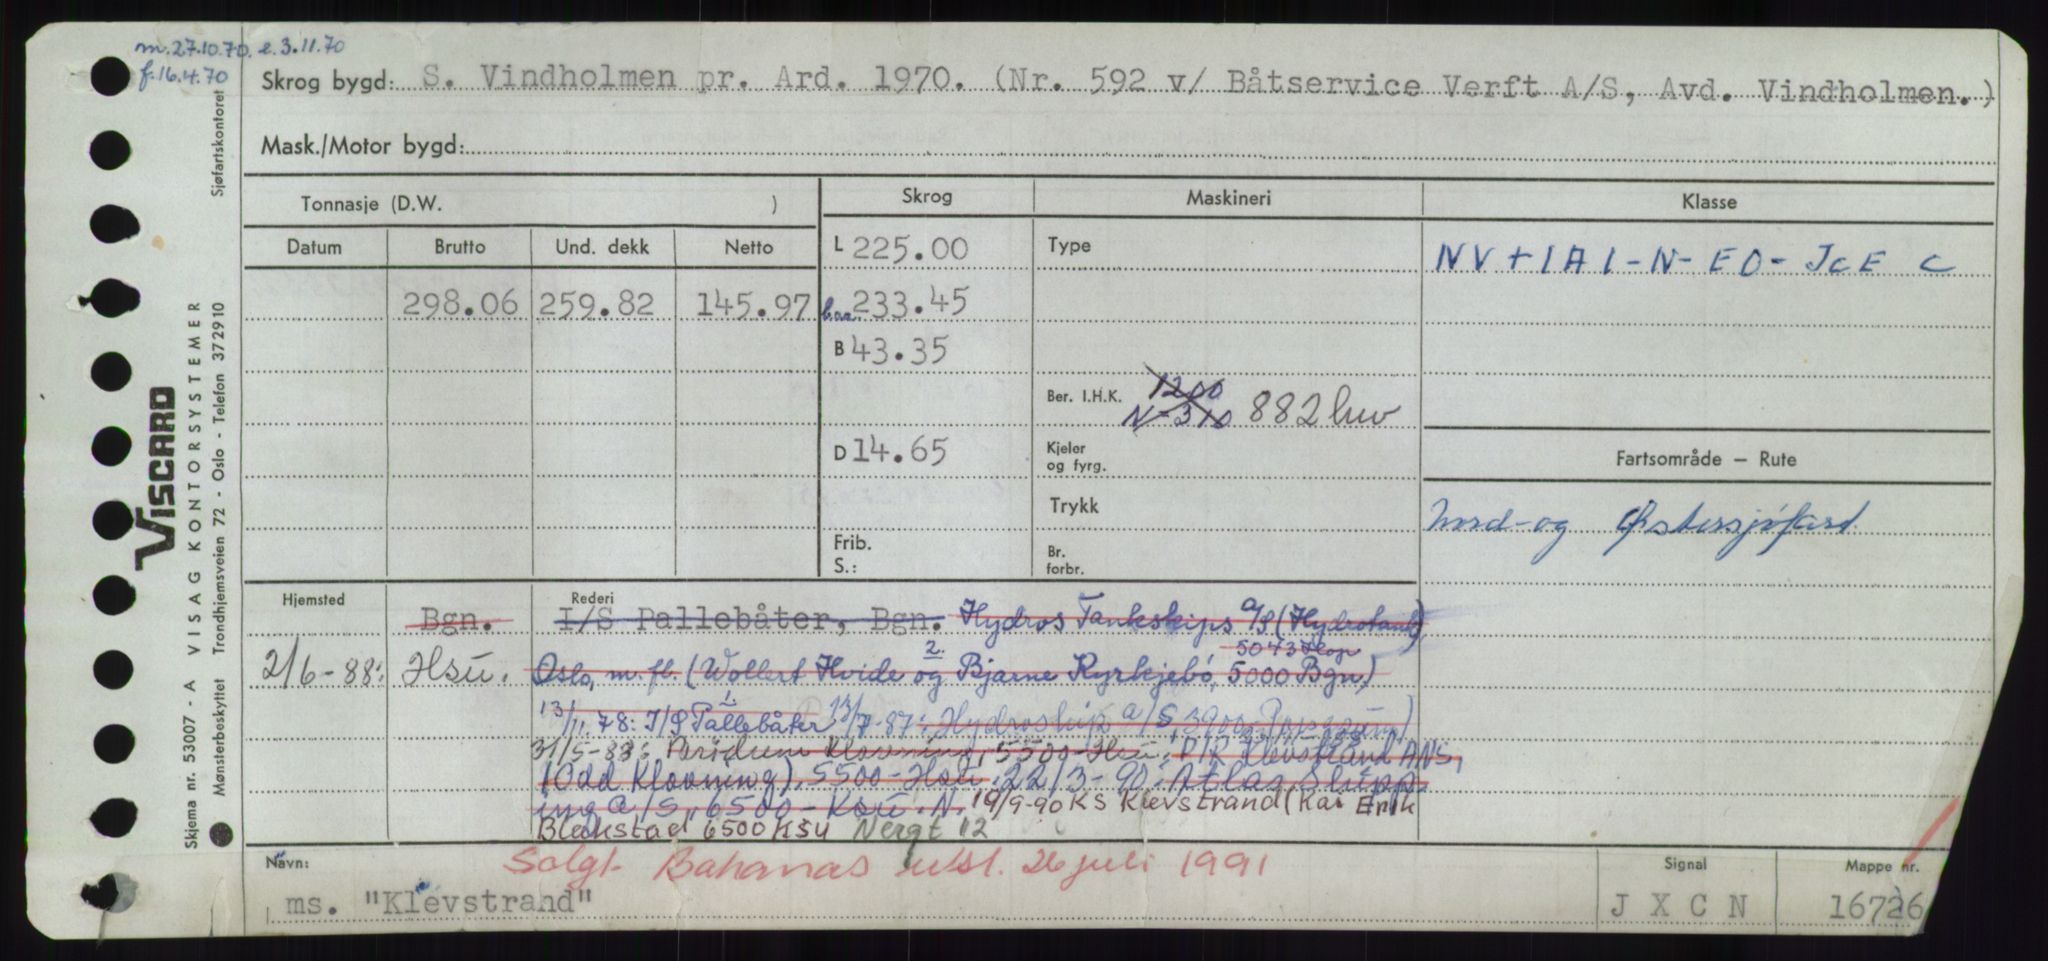 m. 27.10.70. e. 3.11.70
f. 16.4.70
Skrog bygd: S. Vindholmen pr. Ard. 1970. (Nr. 592 v/ Båtservice Verft A/S, Avd. Vindholmen.)
Mask./Motor bygd:
Tonnasje (D.W. )
Skrog
Maskineri
Klasse
Datum
Brutto
Und. dekk
Netto
L 225.00
Type
NV + 1A1-N-EO-JCE C
298.06 259.82 145.97
233.45
B 43.35
Ber. I.H.K. 1200
N-310 882
D 14.65
Kjeler
og fyrg.
Fartsområde – Rute
Trykk
Nord- og Østersjøfart
Frib.
S.:
Br.
forbr.
Hjemsted
Rederi
Bgn. I/S Pallebåter, Bgn. Hydros Tankskips A/S (Hydrotank)
2. 5043 Hop
2/6-88: Hsu. Oslo, m.fl. (Wollert Hvide og Bjarne Kyrkjebø, 5000 Bgn.)
13/11.78: I/S Pallebåter 13/7-87: Hydroskip A/S, 3900
31/5-88: Klovning, 5500-Hsu: P/R Klevstrand ANS,
(Odd Klovning), 5500-Hsu: 22/3-90: Atlas Shipp
ing A/S, 6500-Ksu. N. 19/9-90 KS Klevstrand (Kai Erik
Blekstad 6500 KSU Nergt 12
Navn:
Solgt Bahamas utsl. 26 juli 1991
Signal
Mappe nr.
ms. "Klevstrand"
J X C N
16726
Skjema nr. 53007 - A VISAG KONTORSYSTEMER
VISCARD
Mønsterbeskyttet Trondhjemsveien 72 - Oslo - Telefon 372910 Sjøfartskontoret